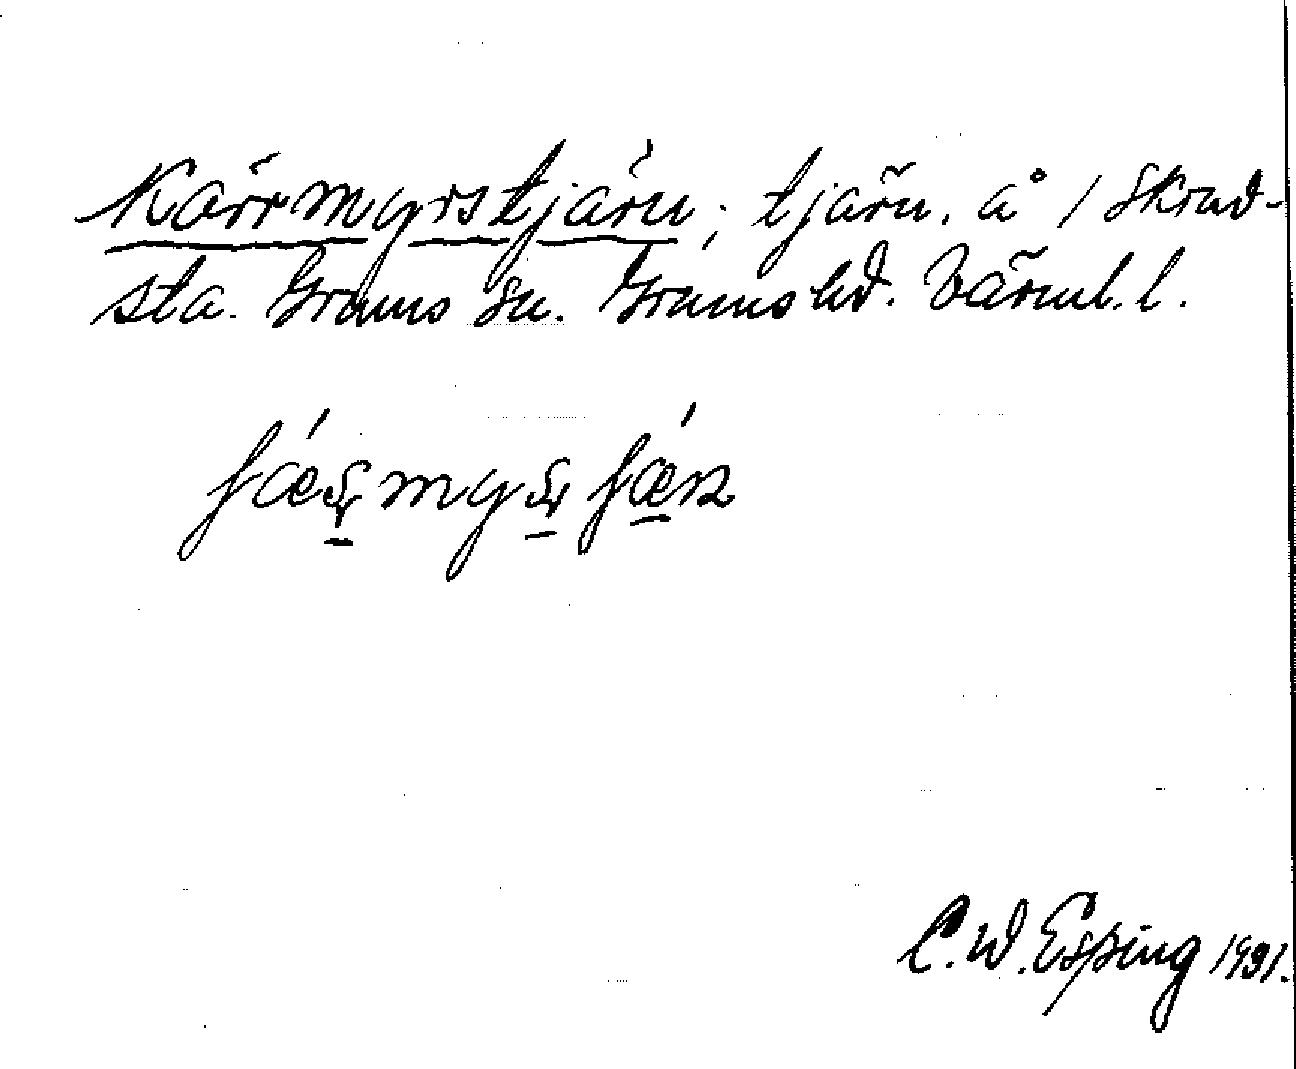 Kärrmyrstjärn; tjärn, å 1 Skruv-
sta. Grums sn. Grums hd. Värml. l.
C. W. Esping 1931.